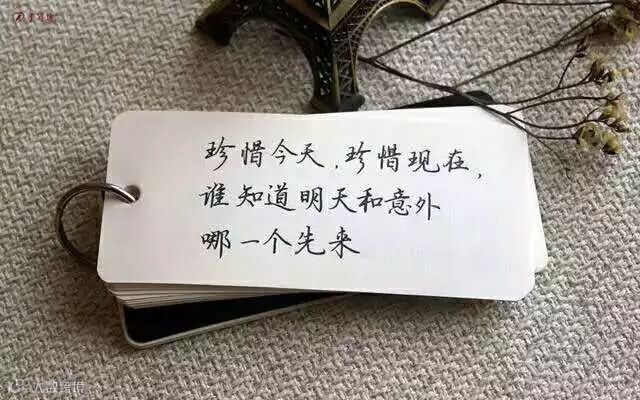 珍惜今天,珍惜现在,
谁知道明天和意外
哪一个先来
大数跨境